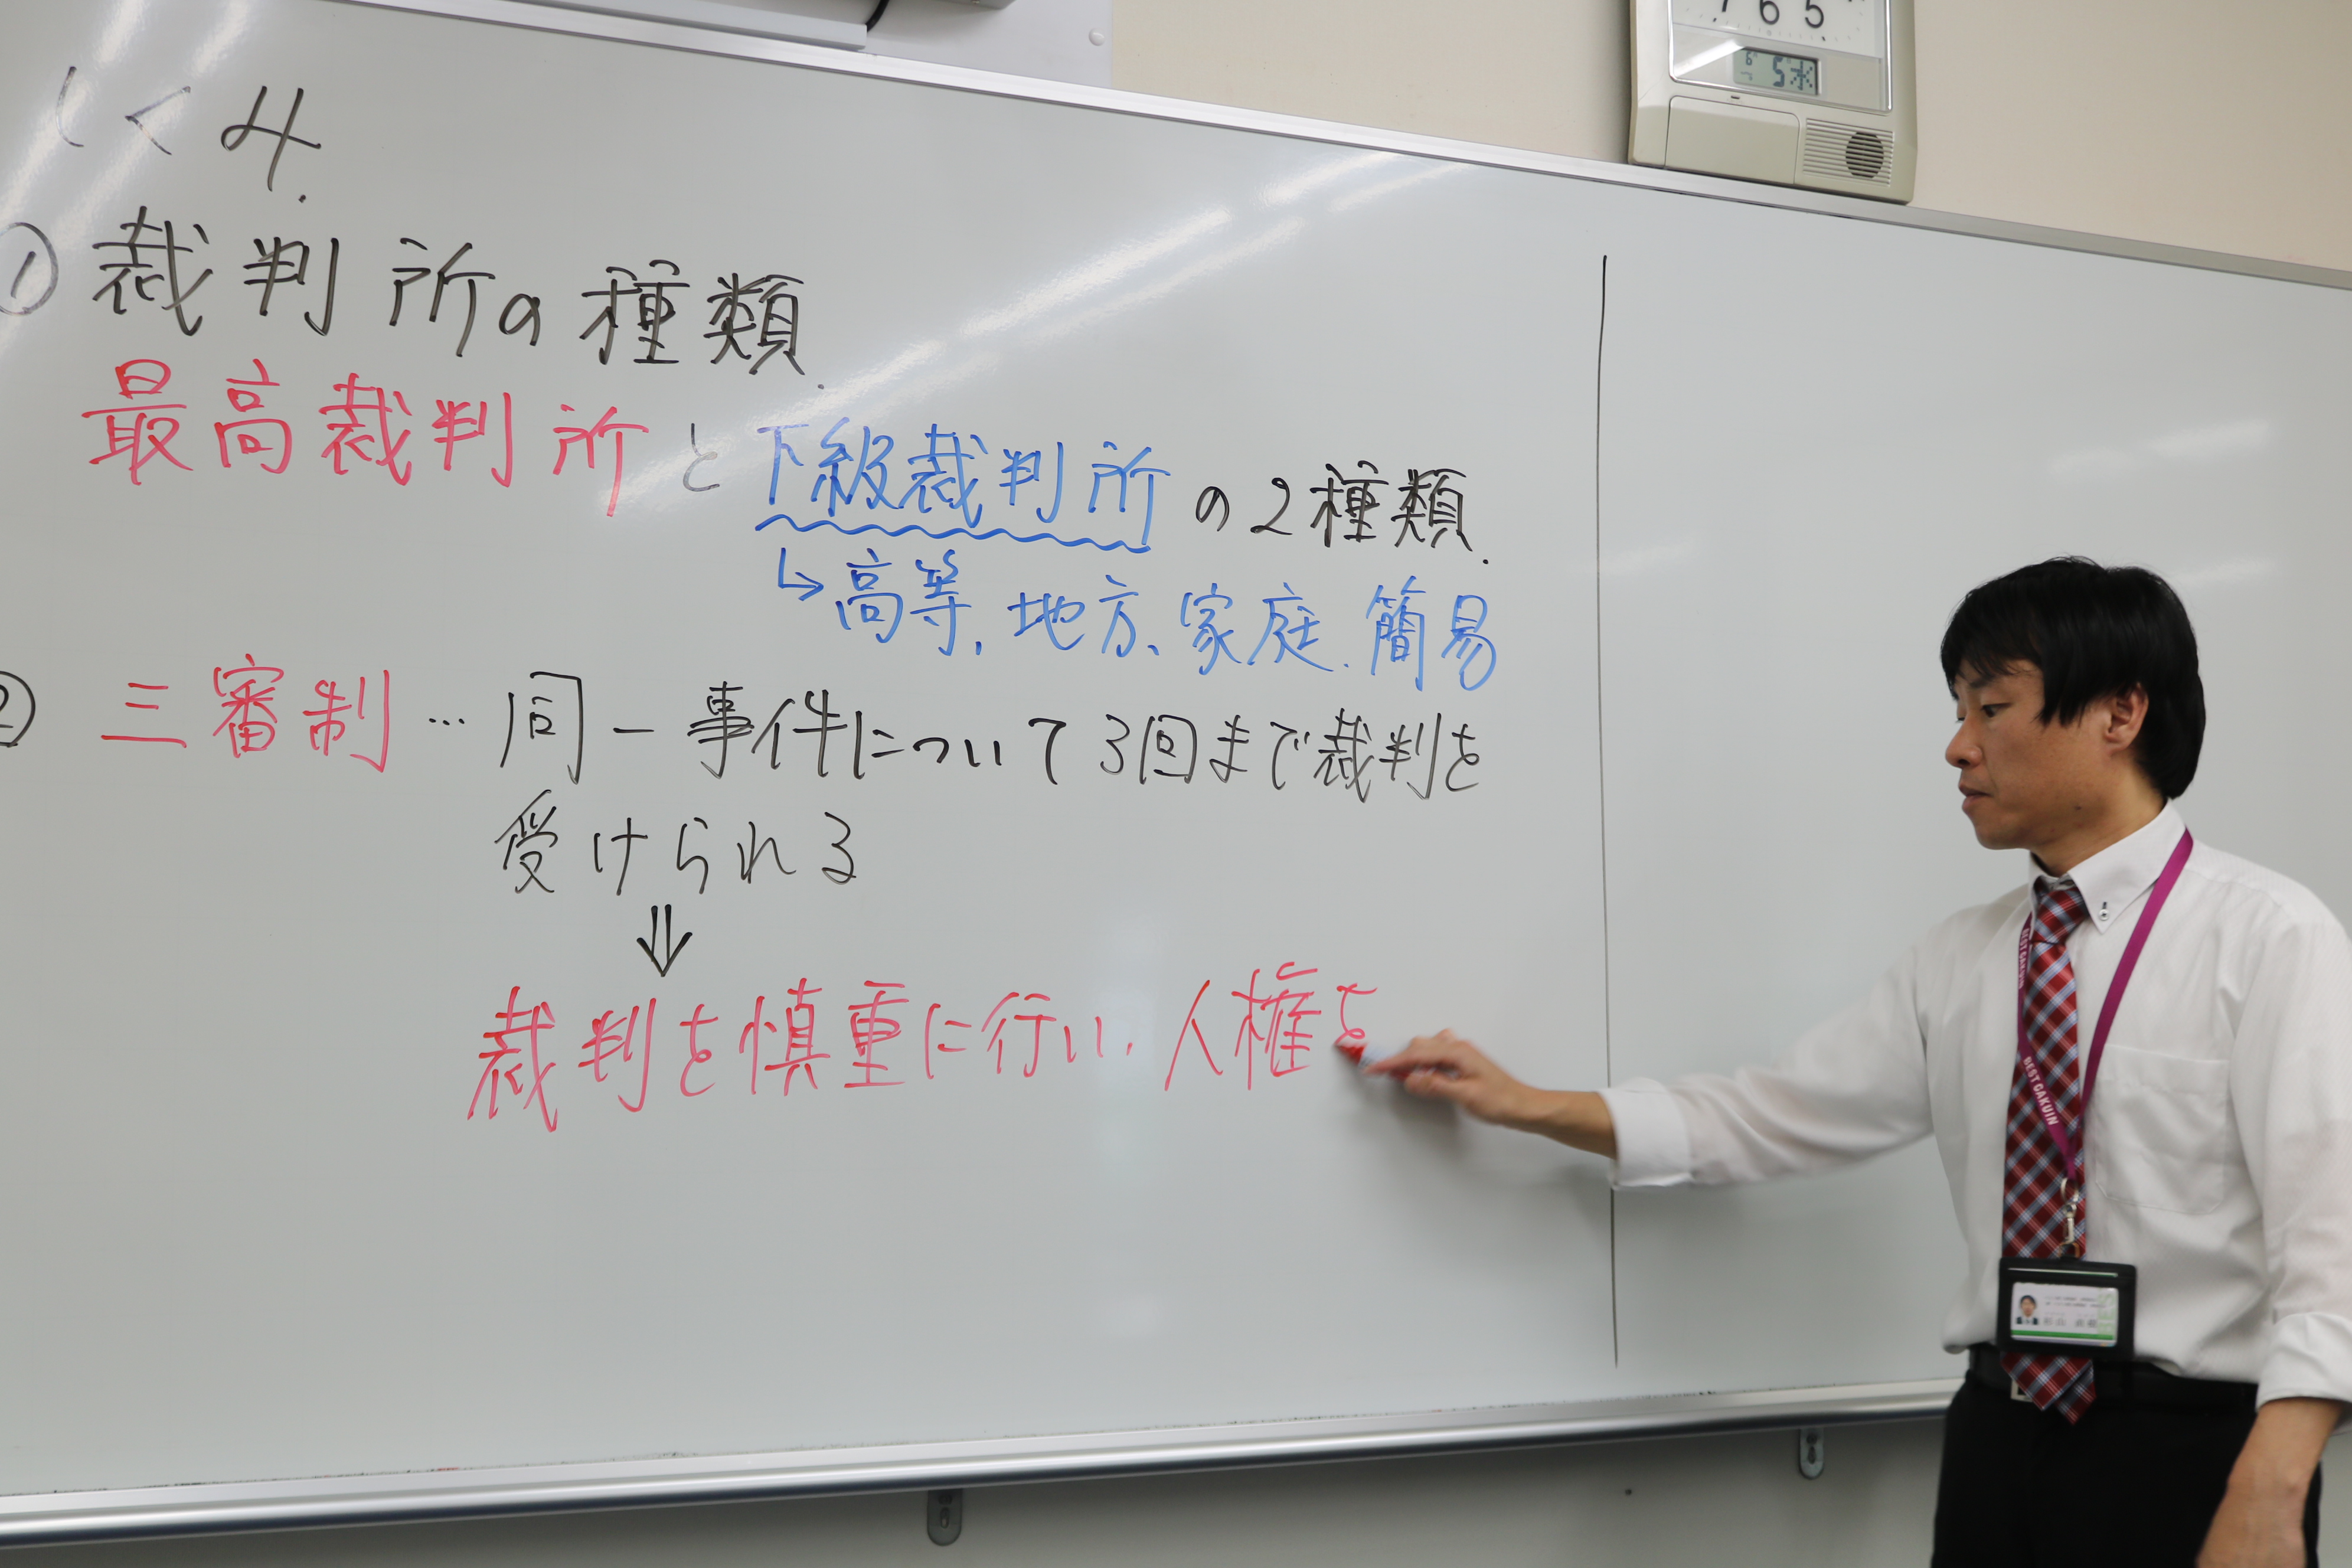 しくみ.
① 裁判所の種類.
最高裁判所と下級裁判所の2種類.
↳高等、地方、家庭、簡易
② 三審制…同一事件について3回まで裁判を
受けられる
⇓
裁判を慎重に行い、人権を
7 6 5
5水
BEST GAKUIN